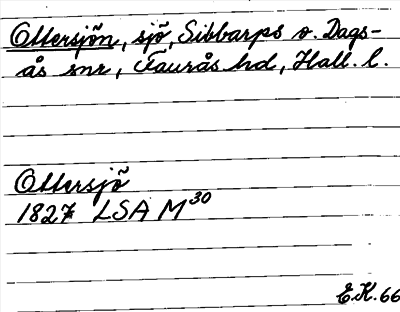 Ottersjön, sjö, Sibbarps o. Dags-
ås snr, Faurås hd, Hall. l.
Ottersjö
1827 LSA M30
E.K. 66